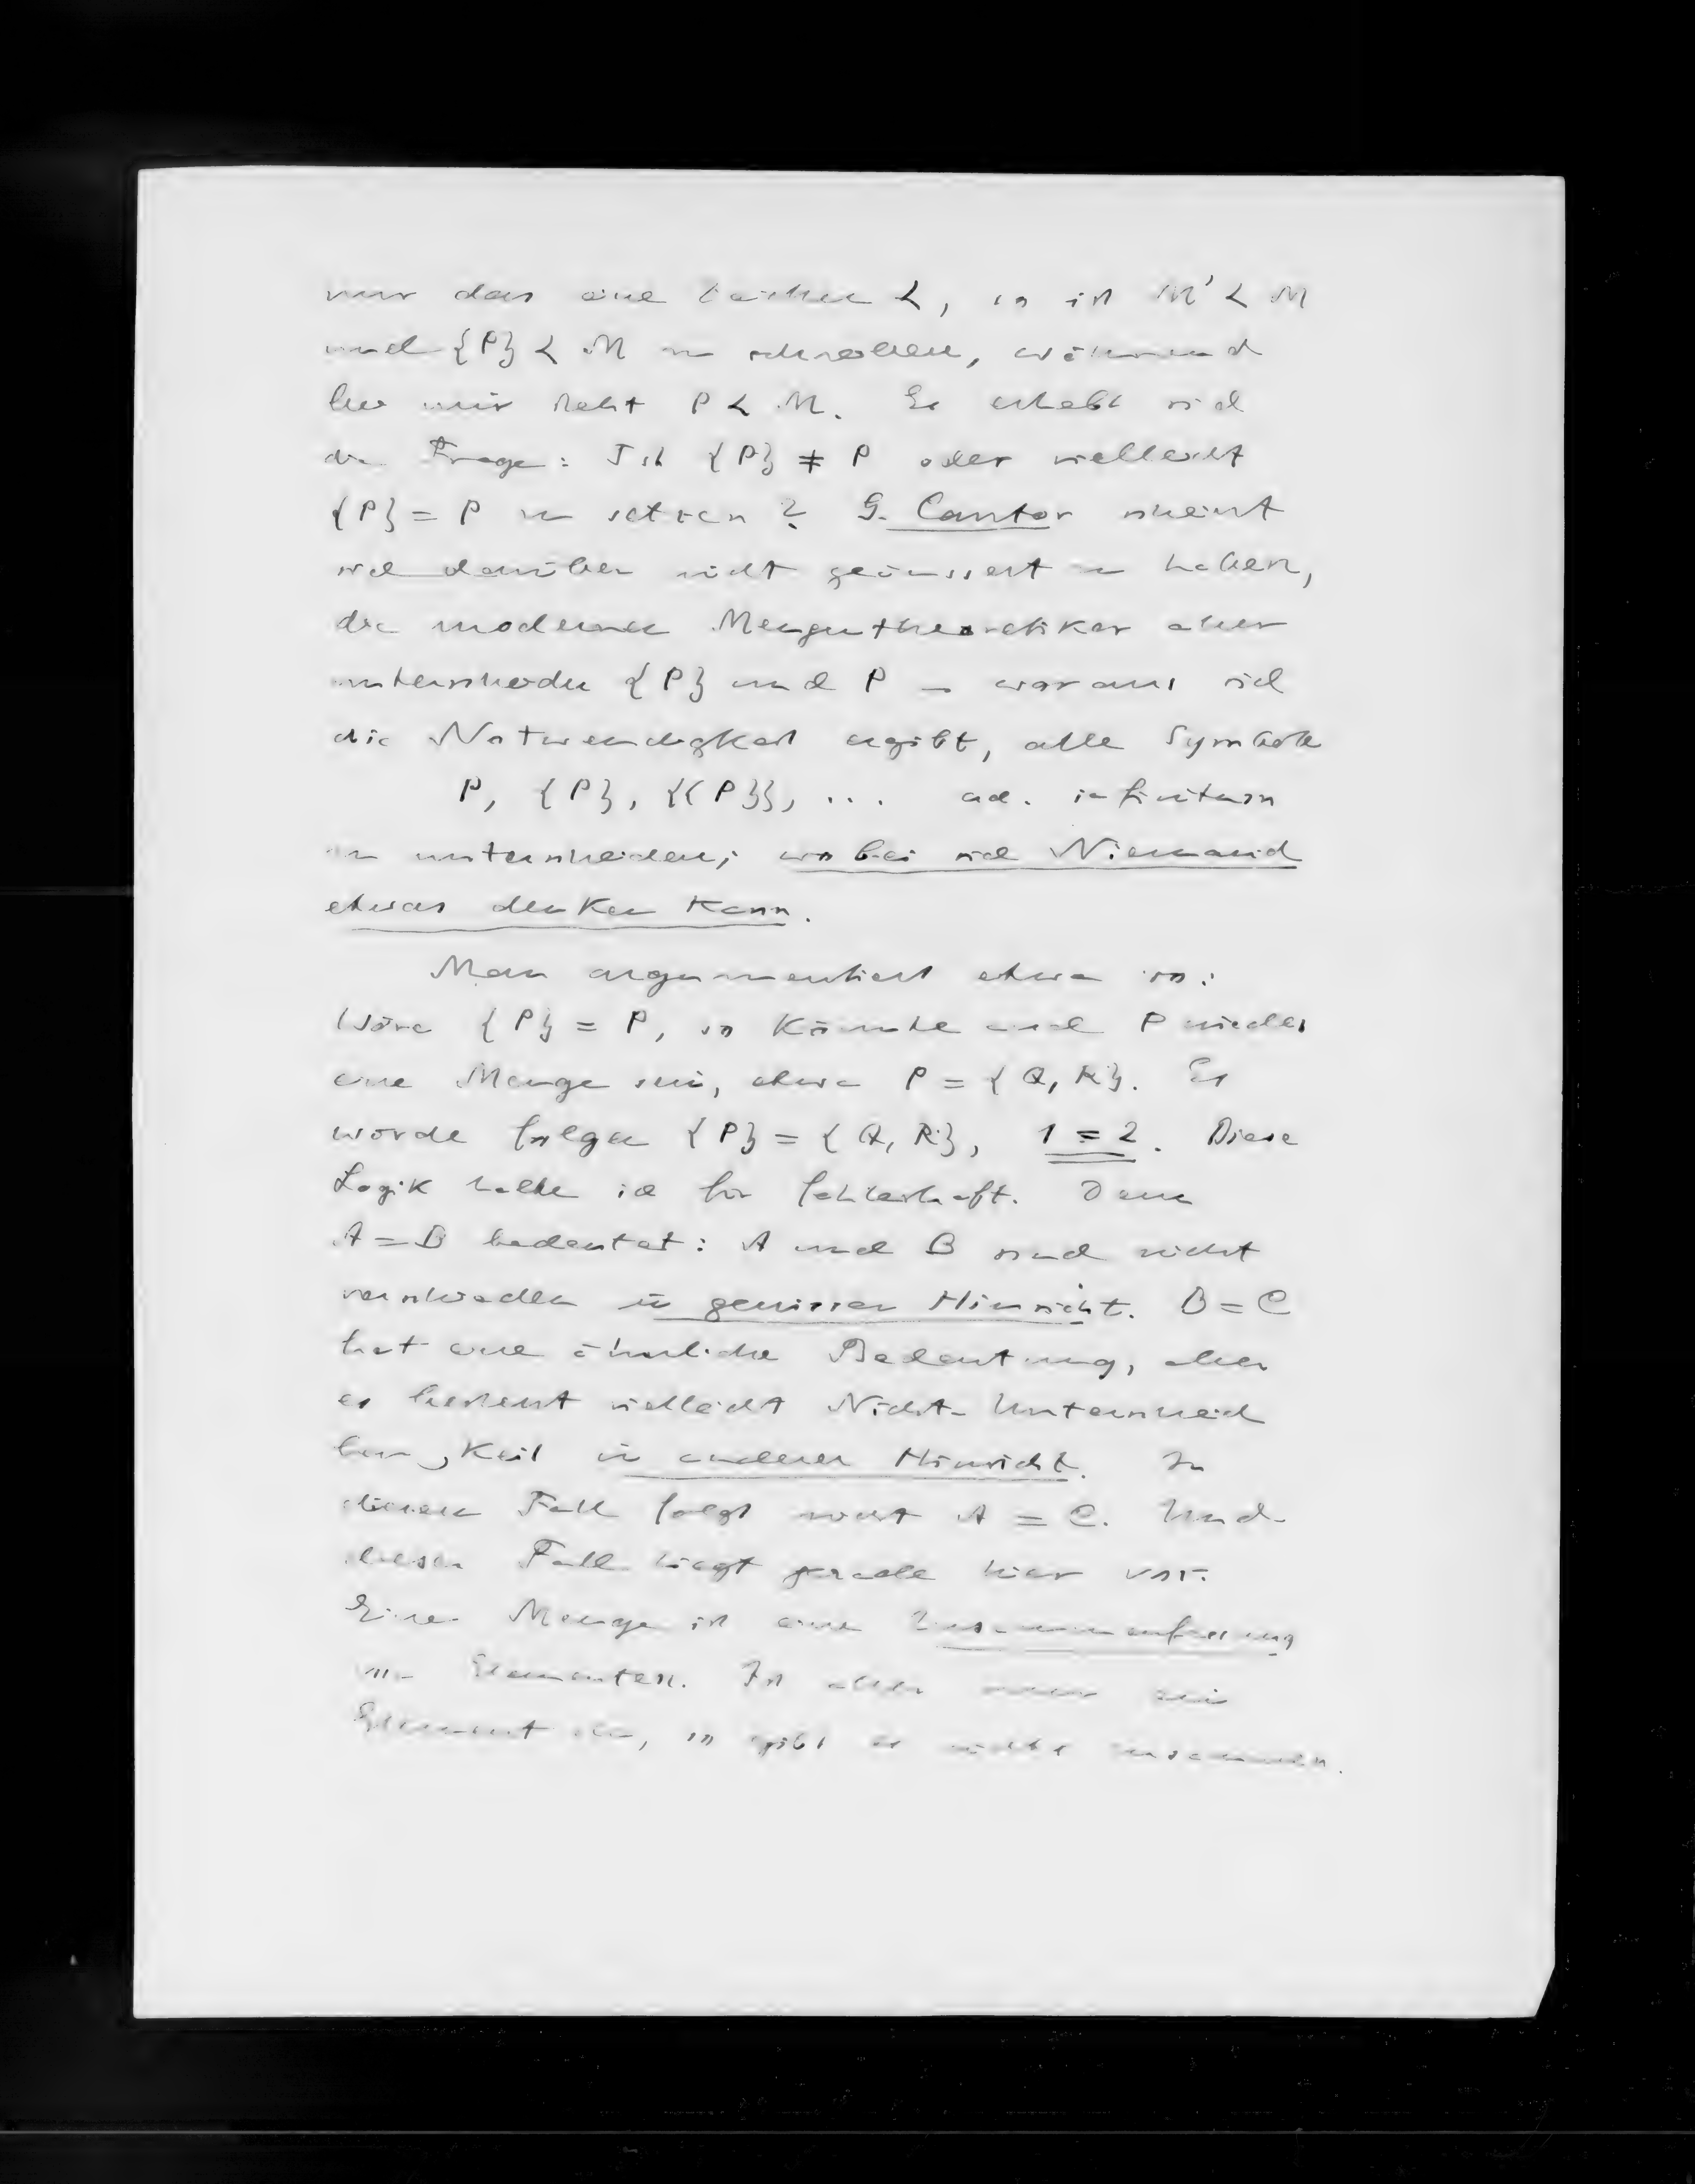 nur das eine Zeichen <, so ist M' < M
und {P} < M zu schreiben, während
hier nur steht P < M. Es erhebt sich
die Frage: Ist {P} ≠ P oder vielleicht
{P} = P zu setzen? G. Cantor scheint
sich darüber nicht geäussert zu haben,
die modernen Mengentheoretiker aber
unterscheiden {P} und P – woraus sich
die Notwendigkeit ergibt, alle Symbole
P, {P}, {{P}}, ... ad. infinitum
zu unterscheiden; wobei sich Niemand
etwas denken kann.
Man argumentiert etwa so:
Wäre {P} = P, so könnte auch P wieder
eine Menge sein, etwa P = {Q, R}. Es
würde folgen {P} = {Q, R}, 1 = 2. Diese
Logik halte ich für fehlerhaft. Denn
A = B bedeutet: A und B sind nicht
verschieden in gewisser Hinsicht. B = C
hat eine ähnliche Bedeutung, aber
es besteht vielleicht Nicht-Unterscheid
barkeit in anderer Hinsicht. In
diesem Fall folgt nicht A = C. Und
dieser Fall liegt gerade hier vor.
Eine Menge ist eine Zusammenfassung
von Elementen. Ist aber nur ein
Element da, so gibt es nichts zusammen.